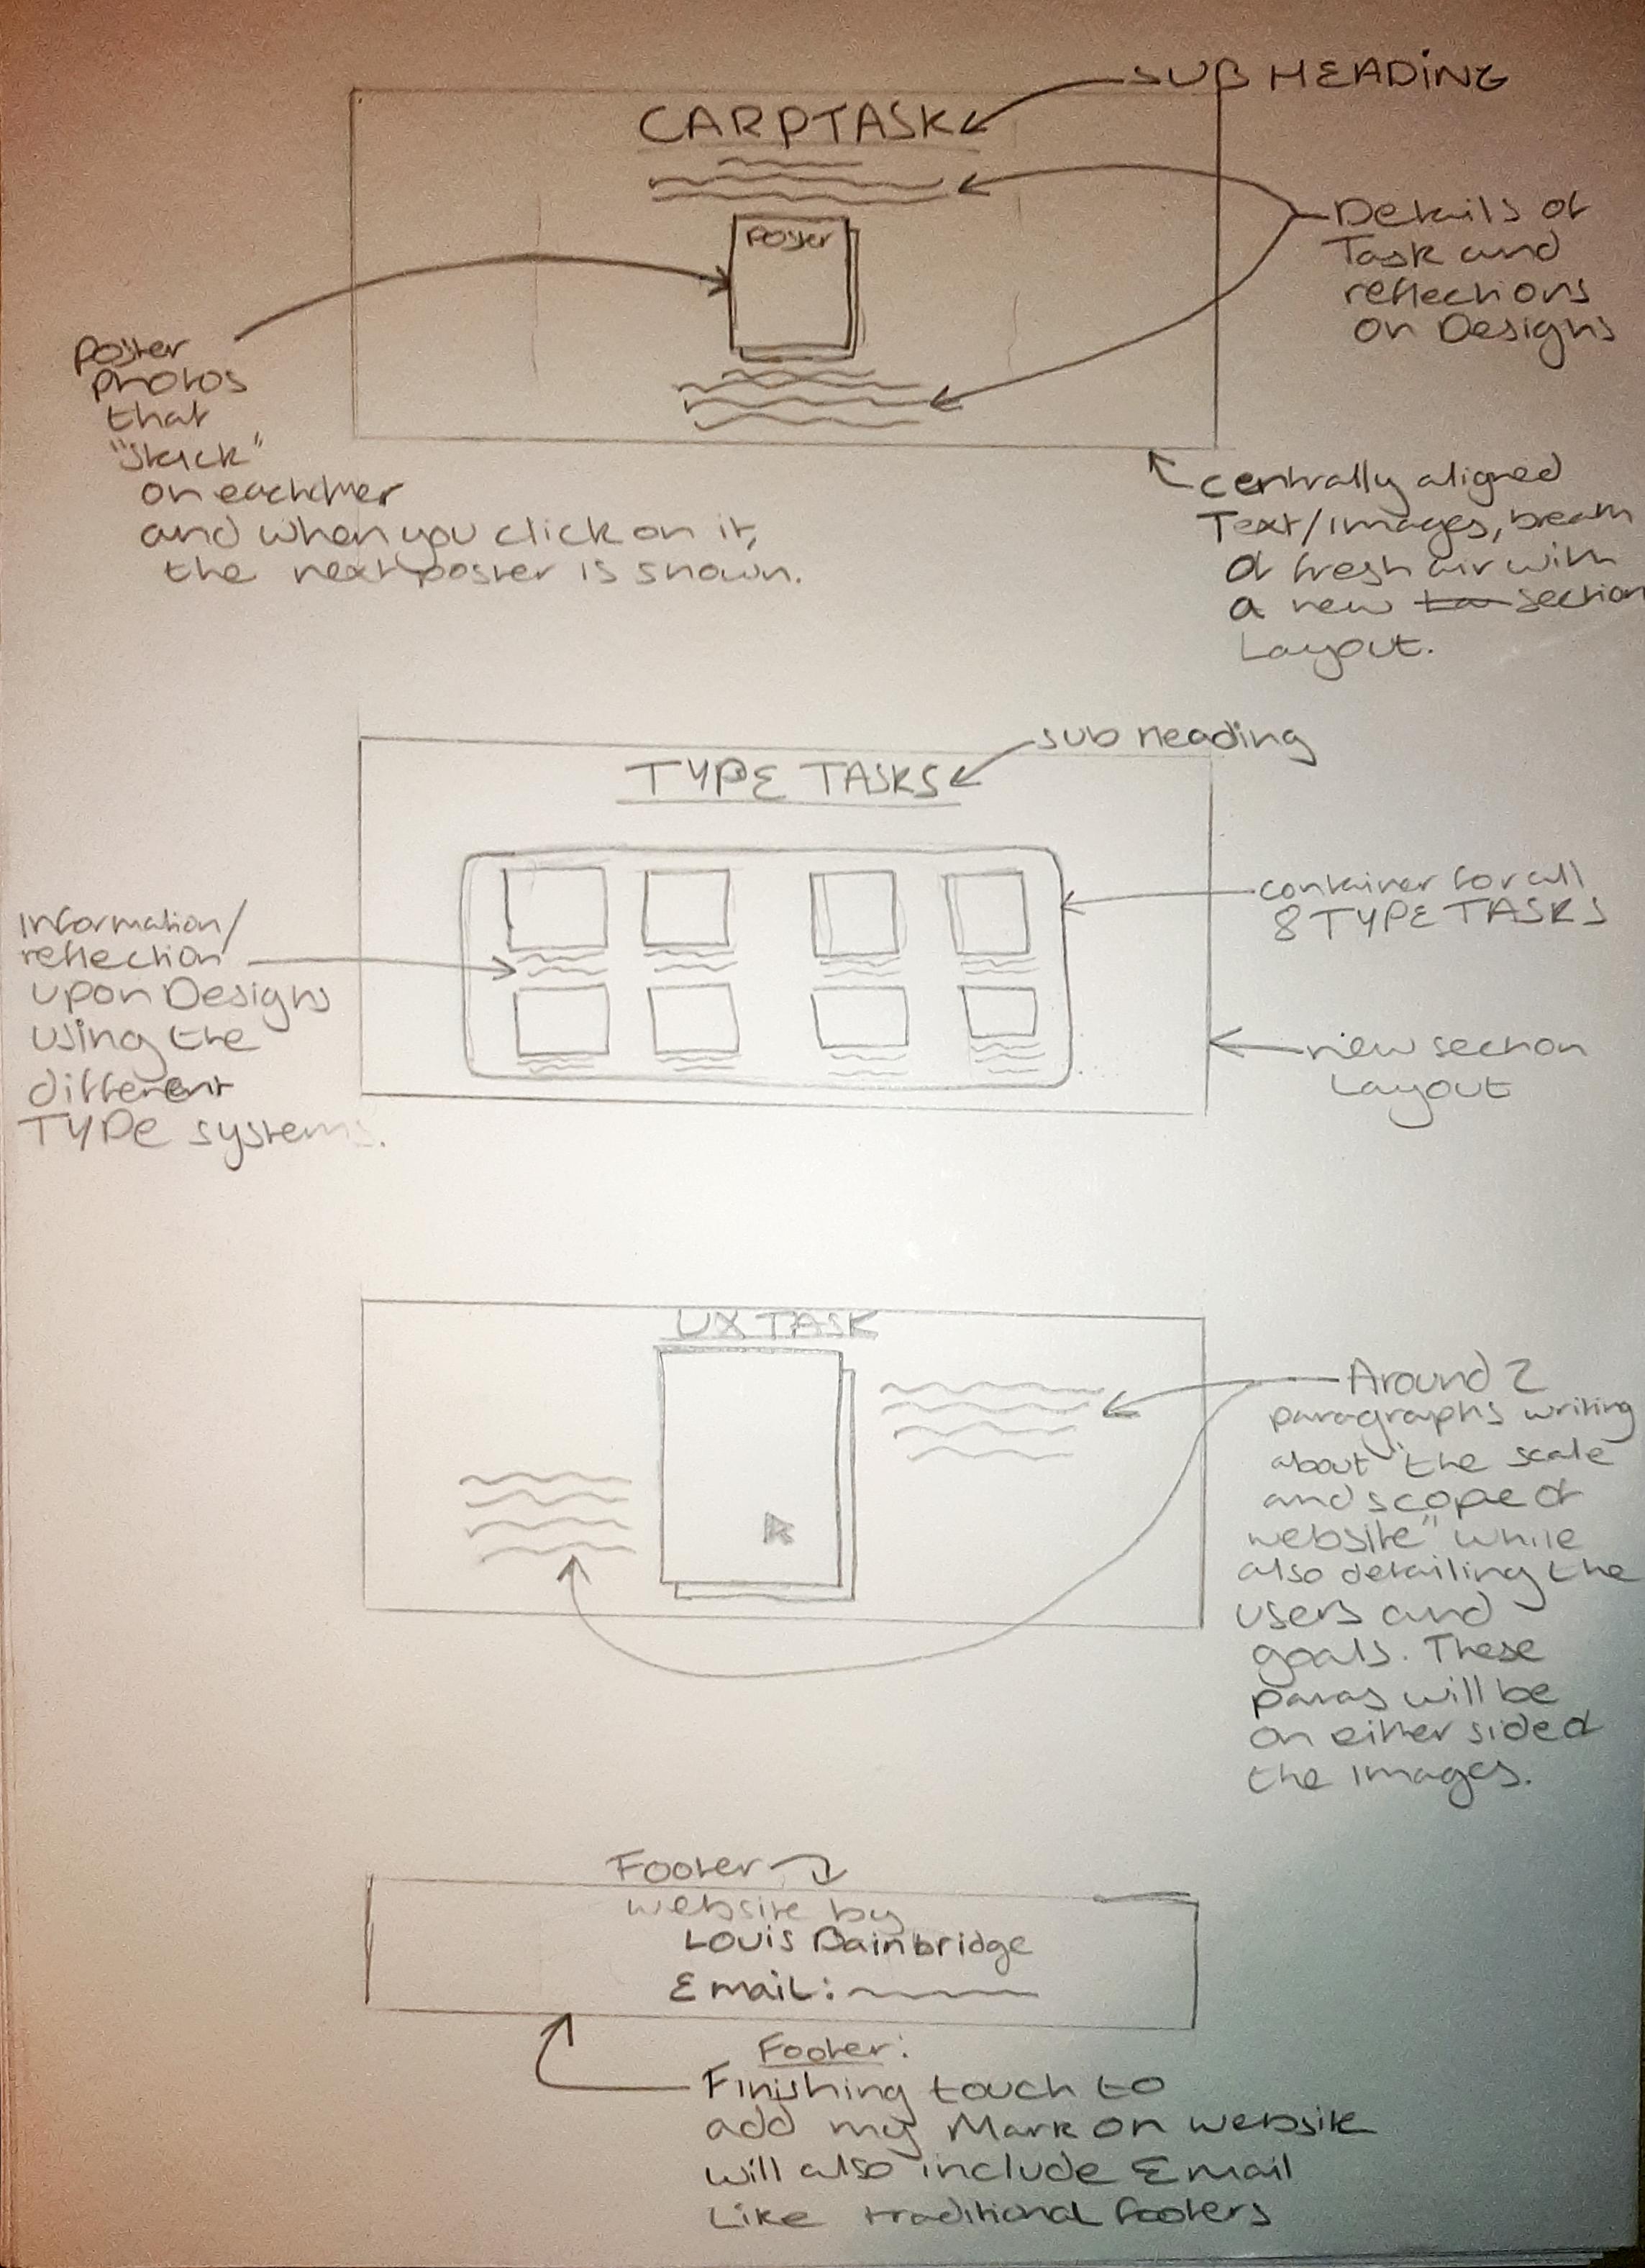 SUB HEADING
CARPTASK
Poster
Details of
Task and
reflections
on Designs
poster
photos
that
"stack"
on eachother
and when you click on it,
the next poster is shown.
centrally aligned
Text/images, breath
of fresh air with
a new section
Layout.
sub heading
TYPE TASKS
container for all
8 TYPE TASKS
Information/
reflection
upon Designs
using the
different
TYPE systems.
new section
Layout
UX TASK
Around 2
paragraphs writing
about "the scale
and scope of
website" while
also detailing the
users and
goals. These
paras will be
on either side of
the images.
Footer
website by
Louis Bainbridge
Email:
Footer:
Finishing touch to
add my Mark on website
will also include Email
Like traditional footers